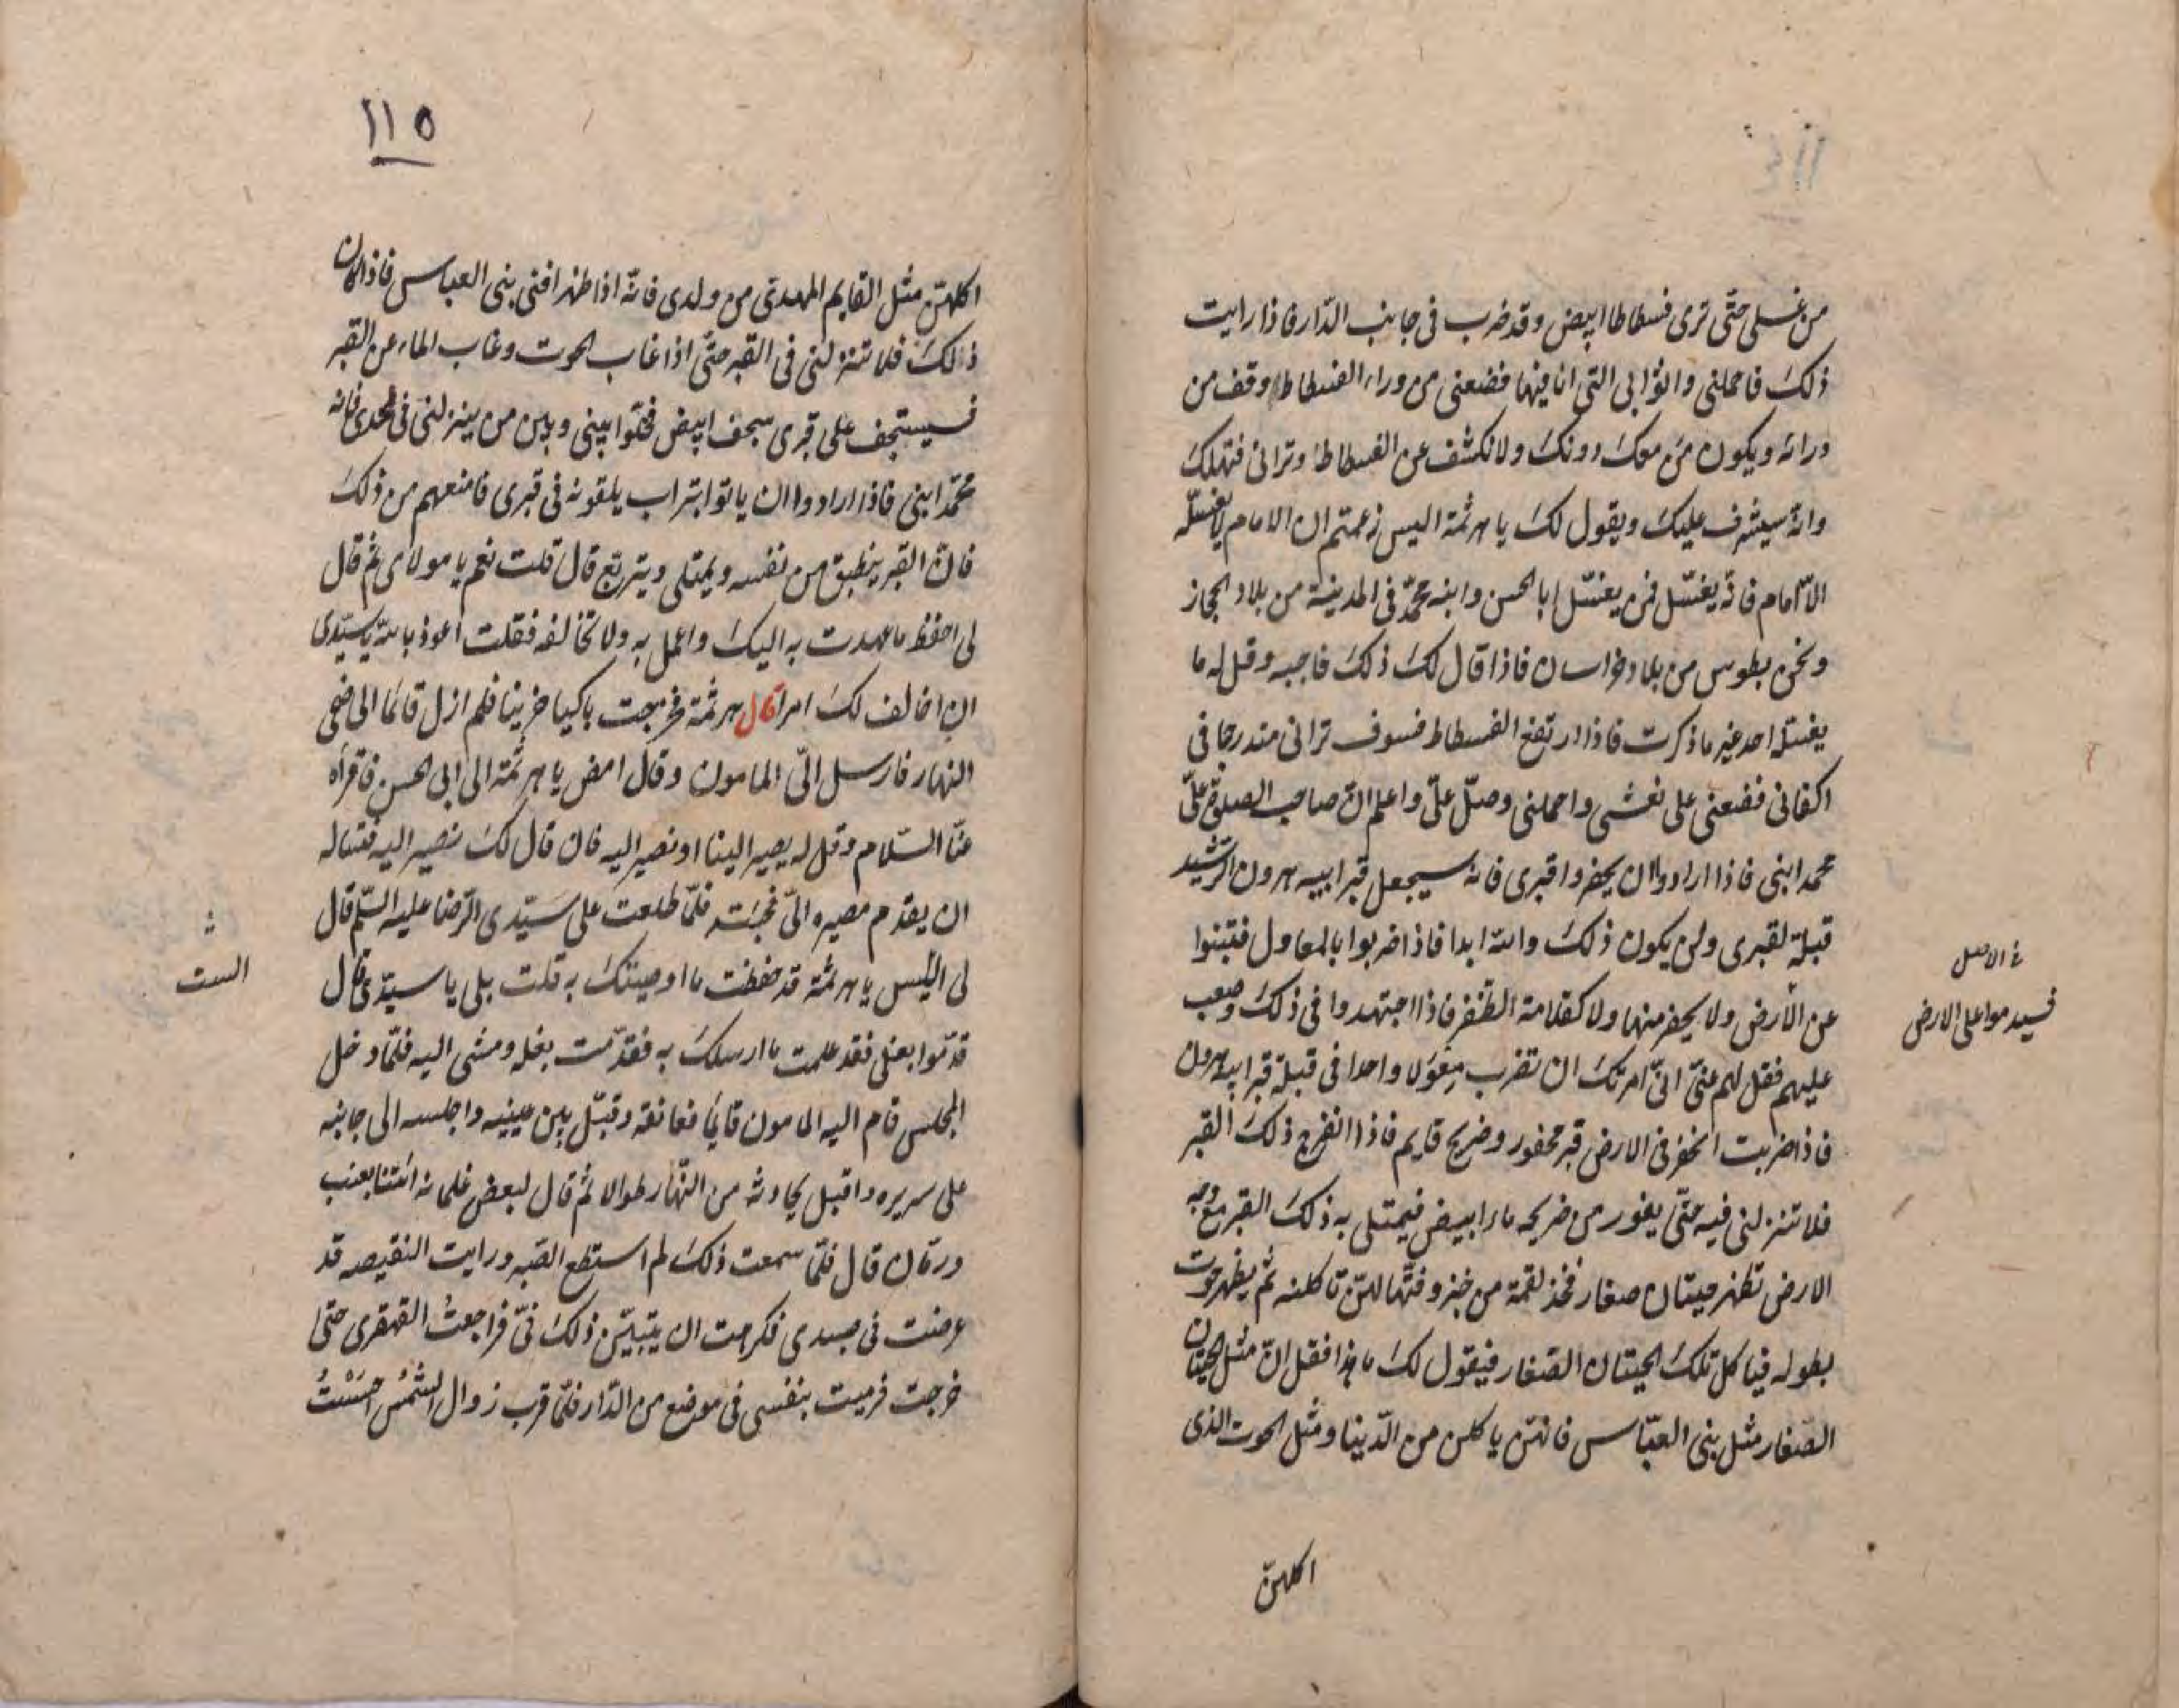 من غسلى حتى ترى فسطاطا ابيض وقد ضرب فى جانب الدار فاذا رايت
ذلك فاحملنى واثوابى التى انا فيها فضعنى من وراء الفسطاط وقف من
ورائه ويكون من معك دونك ولا تكشف عن الفسطاط وترانى فتهلك
وانه سيشرف عليك ويقول لك يا هرثمة اليس زعمتم ان الامام لا يغسله
الا امام فانه يغسل فمن يغسل ابا الحسن وابنه محمد فى المدينة من بلاد الحجاز
ونحن بطوس من بلاد خراسان فاذا قال لك ذلك فاجبه وقل له ما
يغسله احد غير ما ذكرت فاذا ارتفع الفسطاط فسوف ترانى مندرجا فى
اكفانى فضعنى على نعشى واحملنى وصل على واعلم ان صاحب الصلوة على
محمد ابنى فاذا ارادوا ان يحفروا قبرى فانه سيجعل قبر ابيه هرون الرشيد
قبلة لقبرى ولن يكون ذلك والله ابدا فاذا ضربوا بالمعاول فتبنوا
عن الأرض ولا يحفر منها ولا كقلامة الظفر فاذا اجتهدوا فى ذلك وصعب
عليهم فقل لهم عنى انى امرتك ان تضرب معولا واحدا فى قبلة قبر ابيه هرون
فاذا ضربت انحفر فى الارض قبر محفور وضريح قايم فاذا انفرج ذلك القبر
فلا تنزلنى فيه حتى يفور من ضريحه ماء ابيض فيمتلى به ذلك القبر مع وجه
الارض تظهر حيتان صغار فخذ لقمة من خبز وفتها لهن تاكلنه ثم يظهر حوت
بطوله فياكل تلك الحيتان الصغار فيقول لك ما هذا فقل ان مثل الحيتان
الصغار مثل بنى العباس فانهن ياكلن من الدينا ومثل الحوت الذى
اكلهن
فى الاصل
فسيدموا على الارض
١١٥
اكلهن مثل القايم المهدى من ولدى فانه اذا ظهر افنى بنى العباس فاذا كان
ذلك فلا تنزلنى فى القبر حتى اذا غاب الحوت وغاب الماء عن القبر
فسيستجف على قبرى سجف ابيض فخلوا بينى وبين من ينزلنى فى لحدى فانه
محمد ابنى فاذا ارادوا ان ياتوا بتراب يلقونه فى قبرى فامنعهم من ذلك
فان القبر ينطبق من نفسه ويمتلى ويتربع قال قلت نعم يا مولاى ثم قال
لى احفظ ما عهدت به اليك واعمل به ولا تخالفه فقلت اعوذ بالله يا سيدى
ان اخالف لك امرا قال هرثمة فخرجت باكيا حزينا فلم ازل قائما الى ضحى
النهار فارسل الى المامون وقال امض يا هرثمة الى ابى الحسن فاقراه
عنا السلام وقل له يصير الينا او نصير اليه فان قال لك نصير اليه فتساله
ان يقدم مصيره الى فجئته فلما طلعت على سيدى الرضا عليه السلم قال
لى اليس يا هرثمة قد حفظت ما اوصيتك به قلت بلى يا سيدى قال
قدموا بعلى فقد علمت ما ارسلك به فقدمت بغله ومشى اليه فلما دخل
المجلس قام اليه المامون قايما فعانقه وقبل بين عينيه واجلسه الى جانبه
على سريره واقبل يحادثه من النهار طوالا ثم قال لبعض غلمانه ائتنا بعنب
ورمان قال فلما سمعت ذلك لم استطع الصبر ورايت النقيصه قد
عرضت فى جسدى فكرهت ان يتبين ذلك فى فراجعت القهقرى حتى
خرجت فرميت بنفسى فى موضع من الدار فلما قرب زوال الشمس احسست
الست